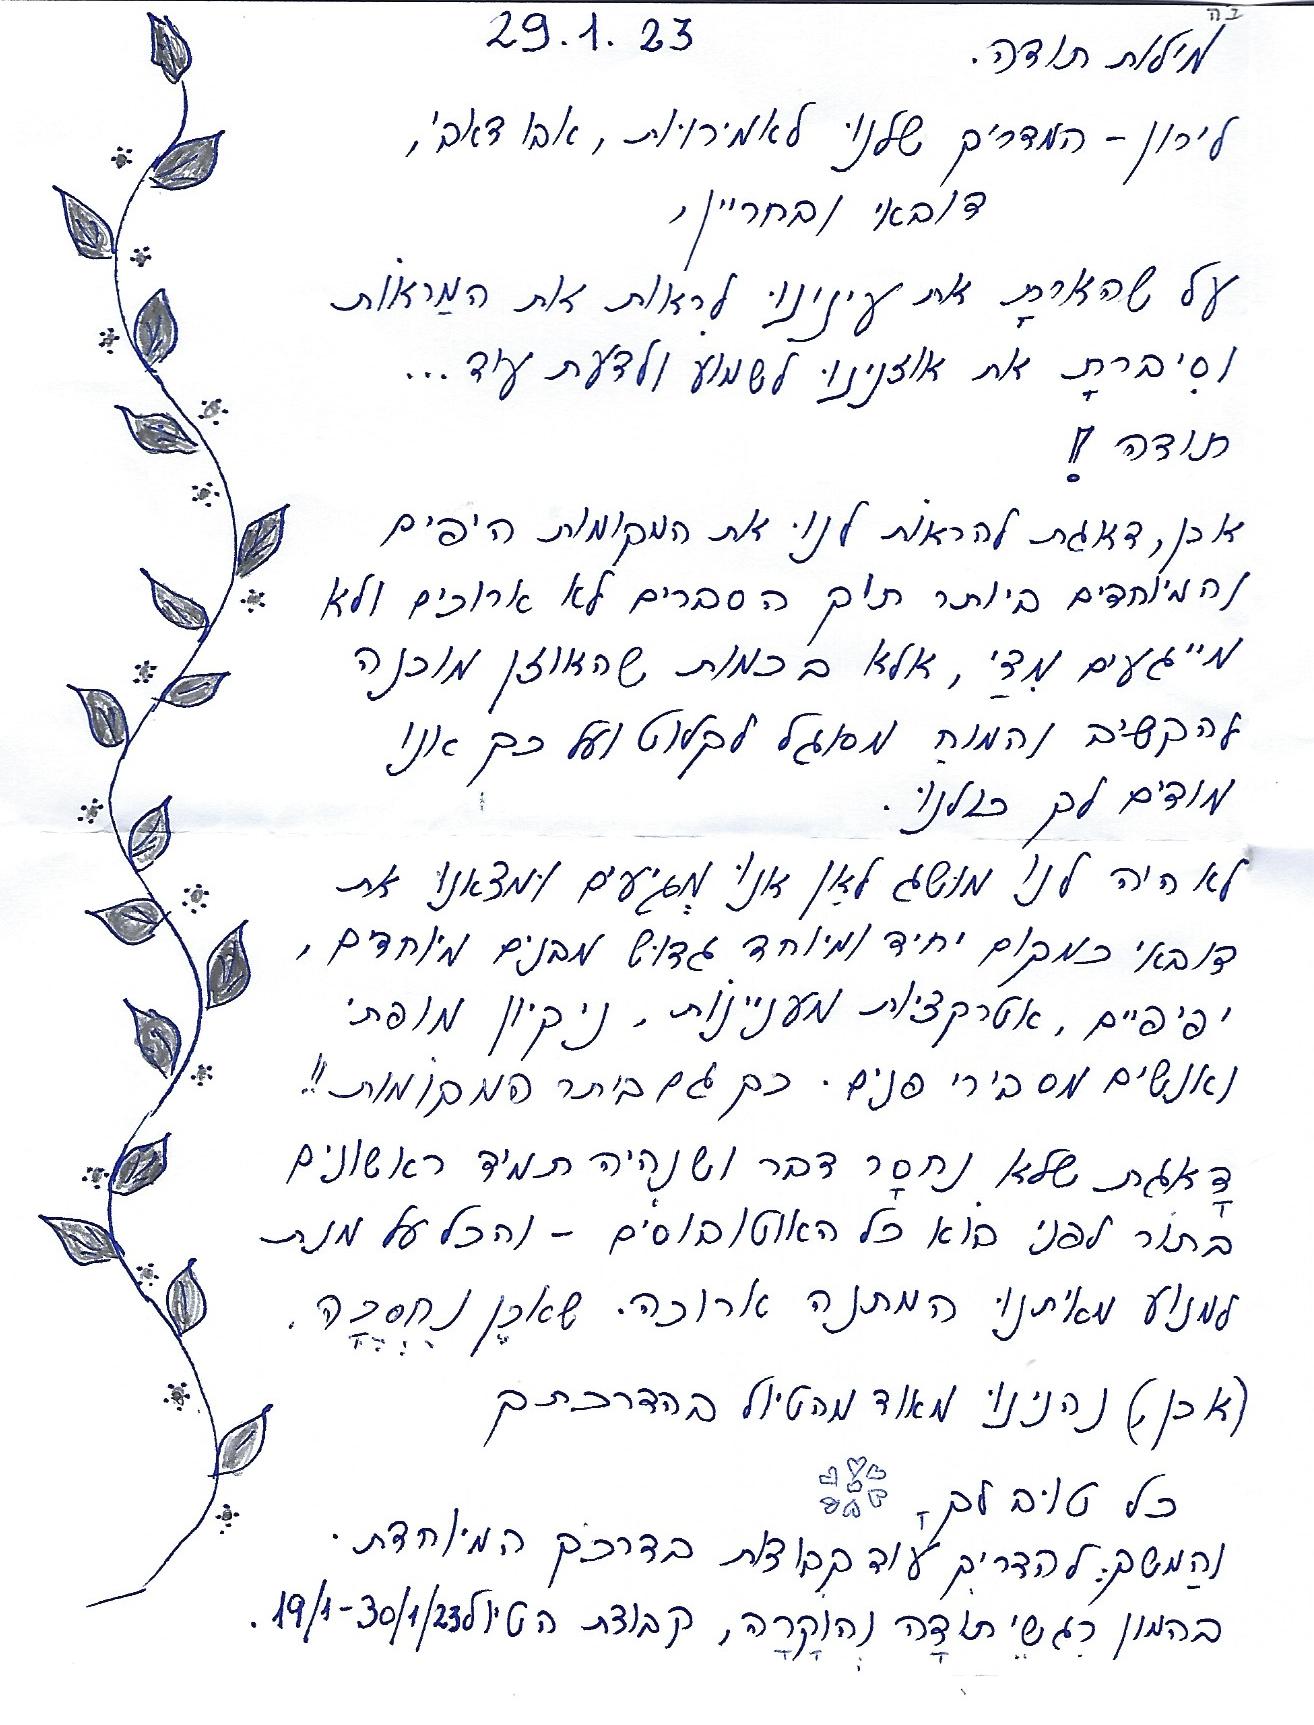 בה
29.1.23
מילות תודה.
לירון - המדריך שלנו לאמירויות, אבו דאבי,
דובאי ובחריין,
על שהארתָ את עינינו לִראות את המַראות
וסִיברתָ את אוזנינו לשמוע ולדעת עוד...
תודה!!
אכן, דאגת להראות לנו את המקומות היפים
והמיוחדים ביותר תוך הסברים לא ארוכים ולא
מייגעים מִדַי, אלא בכמות שהאוזן מוכנה
להקשיב והמוחַ מסוגל לקלוט ועל כך אנו
מודים לך כולנו.
לא היה לנו מושג לאַן אנו מַגיעים ומצאנו את
דובאי כמקום יחיד ומיוחד גדוש מבנים מיוחדים,
יפיפיים, אטרקציות מעניינות, ניקיון מופתי
ואנשים מסבירי פנים. כך גם ביתר המקומות!!
דָאגת שלא נחסָר דבר ושנִהיה תמיד ראשונים
בתור לפני בוא כל האוטובוסים - והכל על מנת
למנוע מאיתנו המתנה ארוכה. שאכֵן נֶחְסְכָה.
(אכן,) נהנינו מאוד מהטיול בהדרכתך
כל טוב לךָ
והַמשך להדריך עוד קבוצות בדרכך המיוחדת.
בהמון רִגשֵי תודָה וְהוֹקָרָה, קבוצת הטיול 19/1-30/1/23.